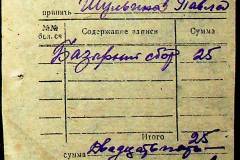 принять Шульгина Павла
№№ Содержание записи Сумма
Базарный сбор 25
Итого 25
сумма Двадцать пять